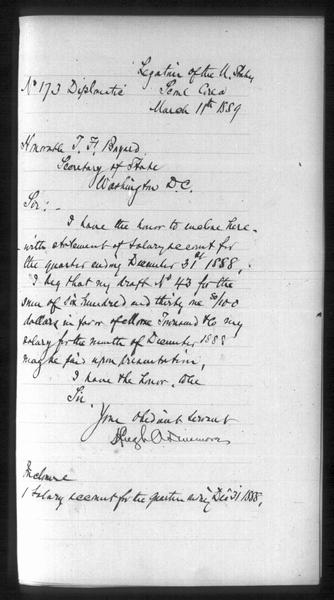 Legation of the U. States
No 173 Diplomatic Seoul Corea
March 11th 1889
Honorable T. F. Bayard
Secretary of State
Washington D.C.
Sir:-
I have the honor to inclose here-
-with statement of salary account for
the quarter ending December 31st 1888,
I beg that my draft No 43 for the
sum of Six hundred and thirty one 80/100
dollars in favor of Morse Townsend & Co my
salary for the month of December 1888
may be paid upon presentation,
I have the honor, to be
Sir
Your obedient servant
Hugh A Dinsmore
Inclosure
1 Salary account for the quarter Dec 31 1888,